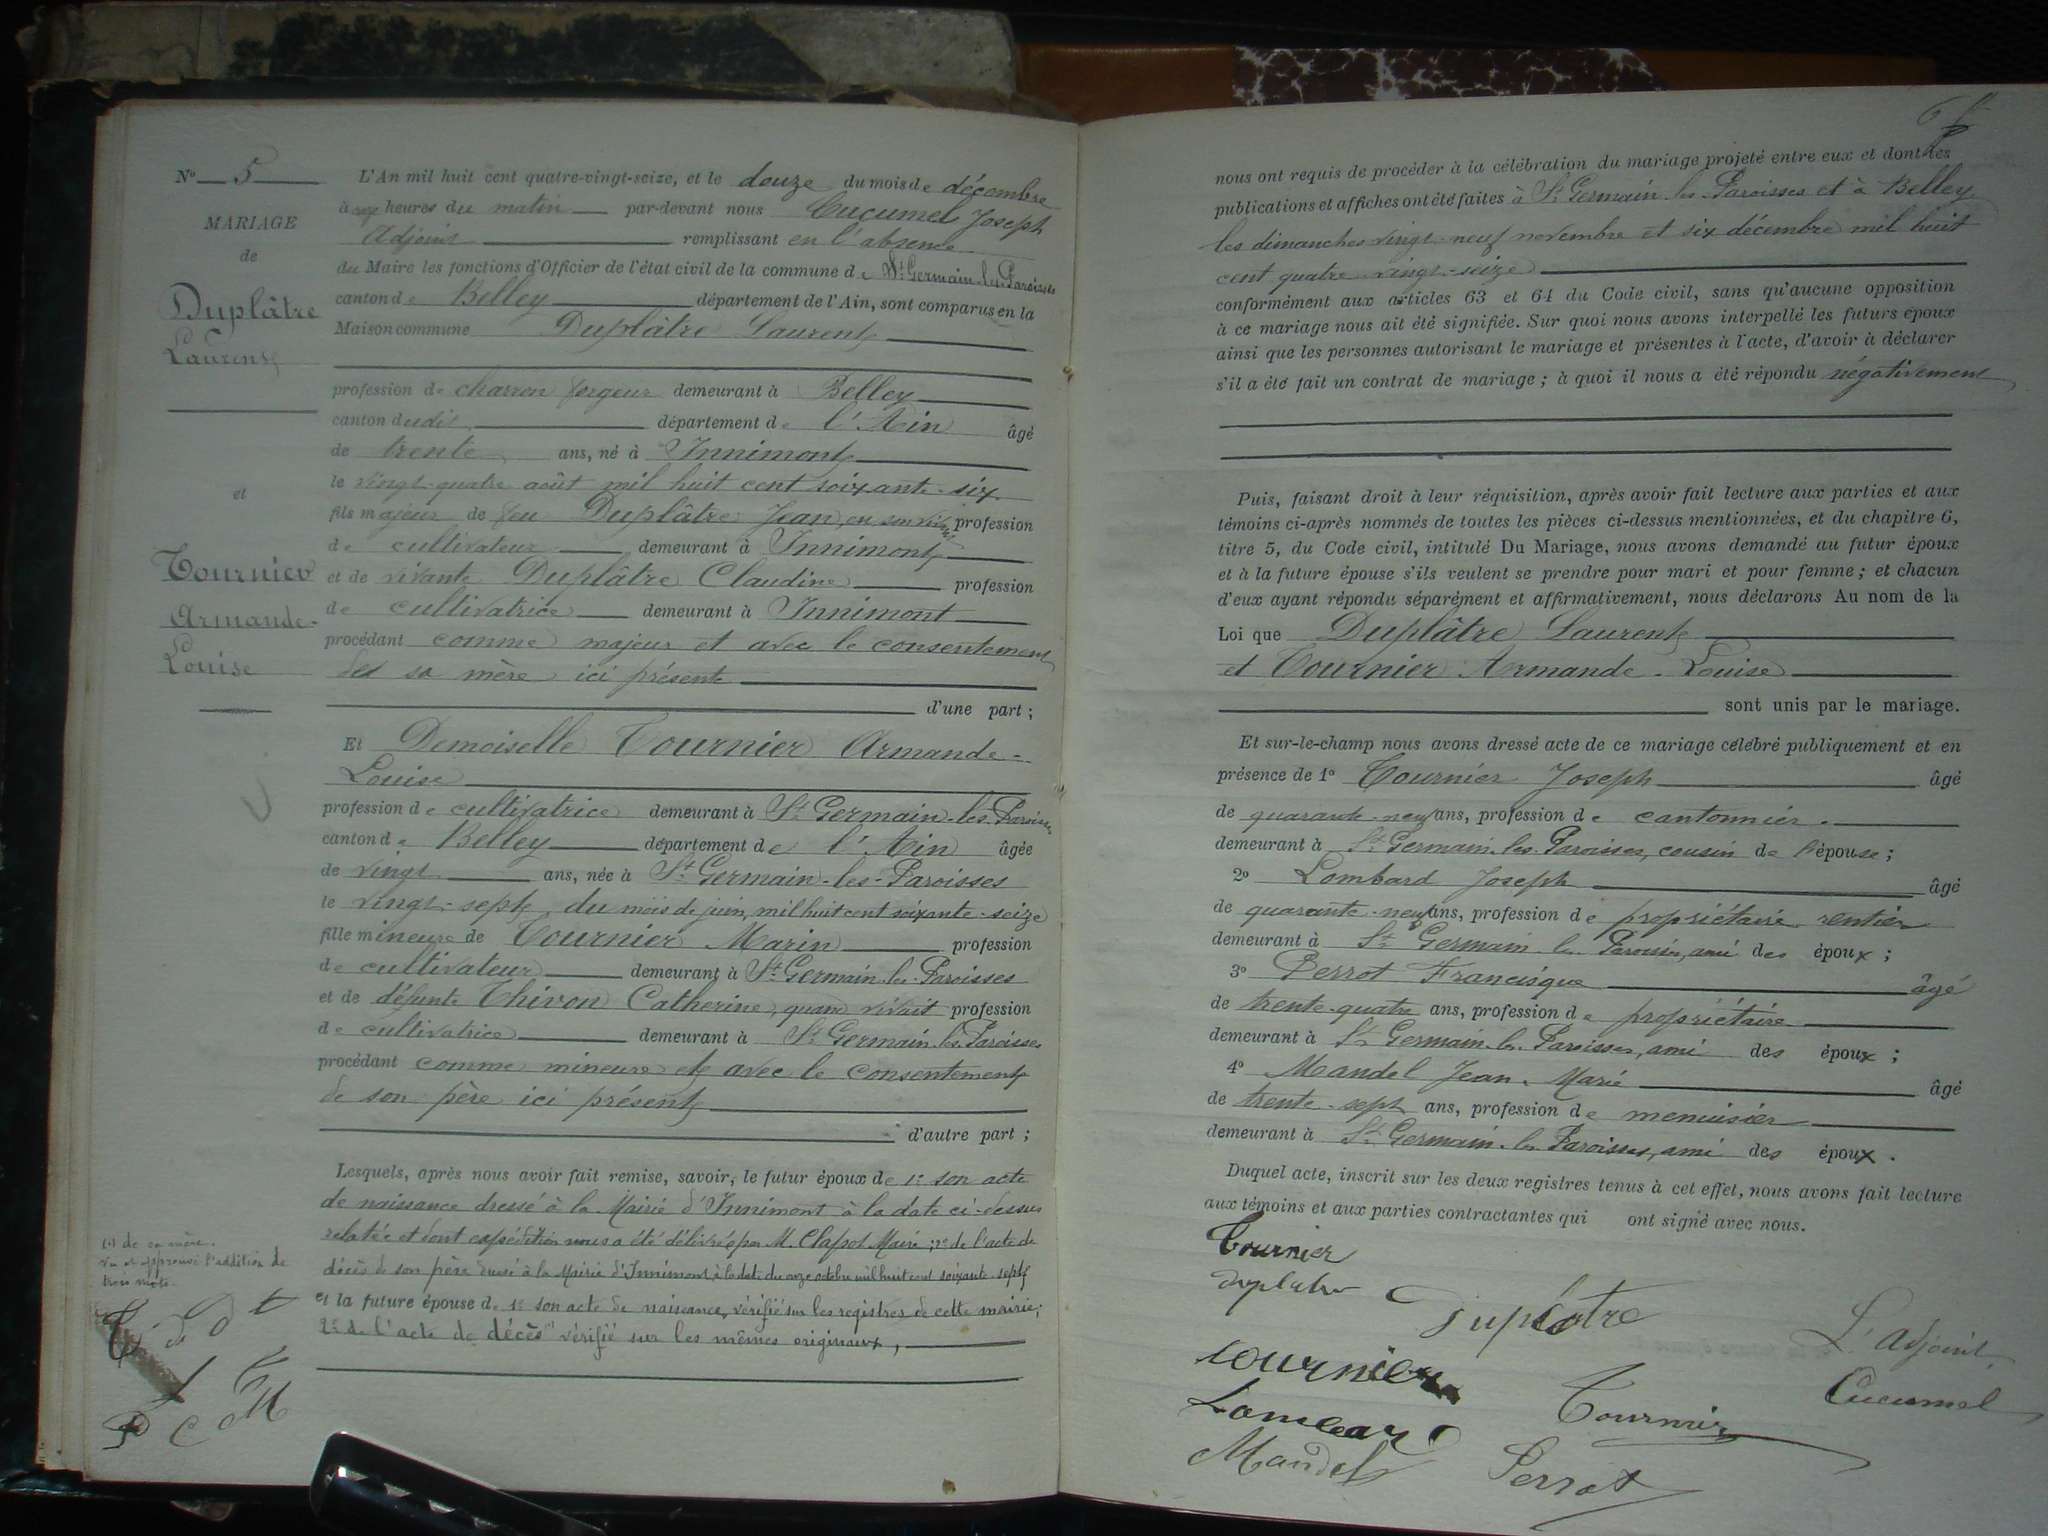 No 5
MARIAGE
de
Duplâtre
Laurent
et
Tournier
Armande-
Louise
L'An mil huit cent quatre-vingt-seize, et le douze du mois de décembre
à heures du matin par-devant nous Cucumel Joseph
Adjoint remplissant en l'absence
du Maire les fonctions d'Officier de l'état civil de la commune de St Germain-les-Paroisses
canton de Belley département de l'Ain, sont comparus en la
Maison commune Duplâtre Laurent
profession de charron forgeur demeurant à Belley
canton dudit département de l'Ain âgé
de trente ans, né à Innimont
le vingt-quatre août mil huit cent soixante-six
fils majeur de feu Duplâtre Jean, en son vivant profession
de cultivateur demeurant à Innimont
et de vivante Duplâtre Claudine profession
de cultivatrice demeurant à Innimont
procédant comme majeur et avec le consentement
de sa mère ici présente
d'une part ;
Et Demoiselle Tournier Armande-
Louise
profession de cultivatrice demeurant à St Germain-les-Paroisses
canton de Belley département de l'Ain âgée
de vingt ans, née à St Germain-les-Paroisses
le vingt-sept du mois de juin, mil huit cent soixante-seize
fille mineure de Tournier Marin profession
de cultivateur demeurant à St Germain-les-Paroisses
et de défunte Thivon Catherine, quand vivait profession
de cultivatrice demeurant à St Germain-les-Paroisses
procédant comme mineure et avec le consentement
de son père ici présent
d'autre part ;
Lesquels, après nous avoir fait remise, savoir, le futur époux de 1º son acte
de naissance dressé à la Mairie d'Innimont à la date ci-dessus
relatée et dont expédition nous a été délivrée par M. Clapot Maire ; 2º de l'acte de
décès de son père dressé à la Mairie d'Innimont à la date du onze octobre mil huit cent soixante-sept
et la future épouse de 1º son acte de naissance, vérifié sur les registres de cette mairie ;
2º de l'acte de décès (1) vérifié sur les mêmes originaux,
(1) de sa mère.
Vu et approuvé l'addition de
trois mots.
nous ont requis de procéder à la célébration du mariage projeté entre eux et dont les
publications et affiches ont été faites à St Germain-les-Paroisses et à Belley
les dimanches vingt-neuf novembre et six décembre mil huit
cent quatre-vingt-seize
conformément aux articles 63 et 64 du Code civil, sans qu'aucune opposition
à ce mariage nous ait été signifiée. Sur quoi nous avons interpellé les futurs époux
ainsi que les personnes autorisant le mariage et présentes à l'acte, d'avoir à déclarer
s'il a été fait un contrat de mariage ; à quoi il nous a été répondu négativement
Puis, faisant droit à leur réquisition, après avoir fait lecture aux parties et aux
témoins ci-après nommés de toutes les pièces ci-dessus mentionnées, et du chapitre 6,
titre 5, du Code civil, intitulé Du Mariage, nous avons demandé au futur époux
et à la future épouse s'ils veulent se prendre pour mari et pour femme ; et chacun
d'eux ayant répondu séparément et affirmativement, nous déclarons Au nom de la
Loi que Duplâtre Laurent
et Tournier Armande-Louise
sont unis par le mariage.
Et sur-le-champ nous avons dressé acte de ce mariage célébré publiquement et en
présence de 1º Tournier Joseph âgé
de quarante-neuf ans, profession de cantonnier
demeurant à St Germain-les-Paroisses, cousin de l'épouse ;
2º Lombard Joseph âgé
de quarante-neuf ans, profession de propriétaire rentier
demeurant à St Germain-les-Paroisses, ami des époux ;
3º Perrot Francisque âgé
de trente-quatre ans, profession de propriétaire
demeurant à St Germain-les-Paroisses, ami des époux ;
4º Mandel Jean-Marie âgé
de trente-sept ans, profession de menuisier
demeurant à St Germain-les-Paroisses, ami des époux.
Duquel acte, inscrit sur les deux registres tenus à cet effet, nous avons fait lecture
aux témoins et aux parties contractantes qui ont signé avec nous.
Tournier
duplatre
Duplatre
L'adjoint,
tournier
Tournier
Cucumel
Lombard
Mandel
Perrot